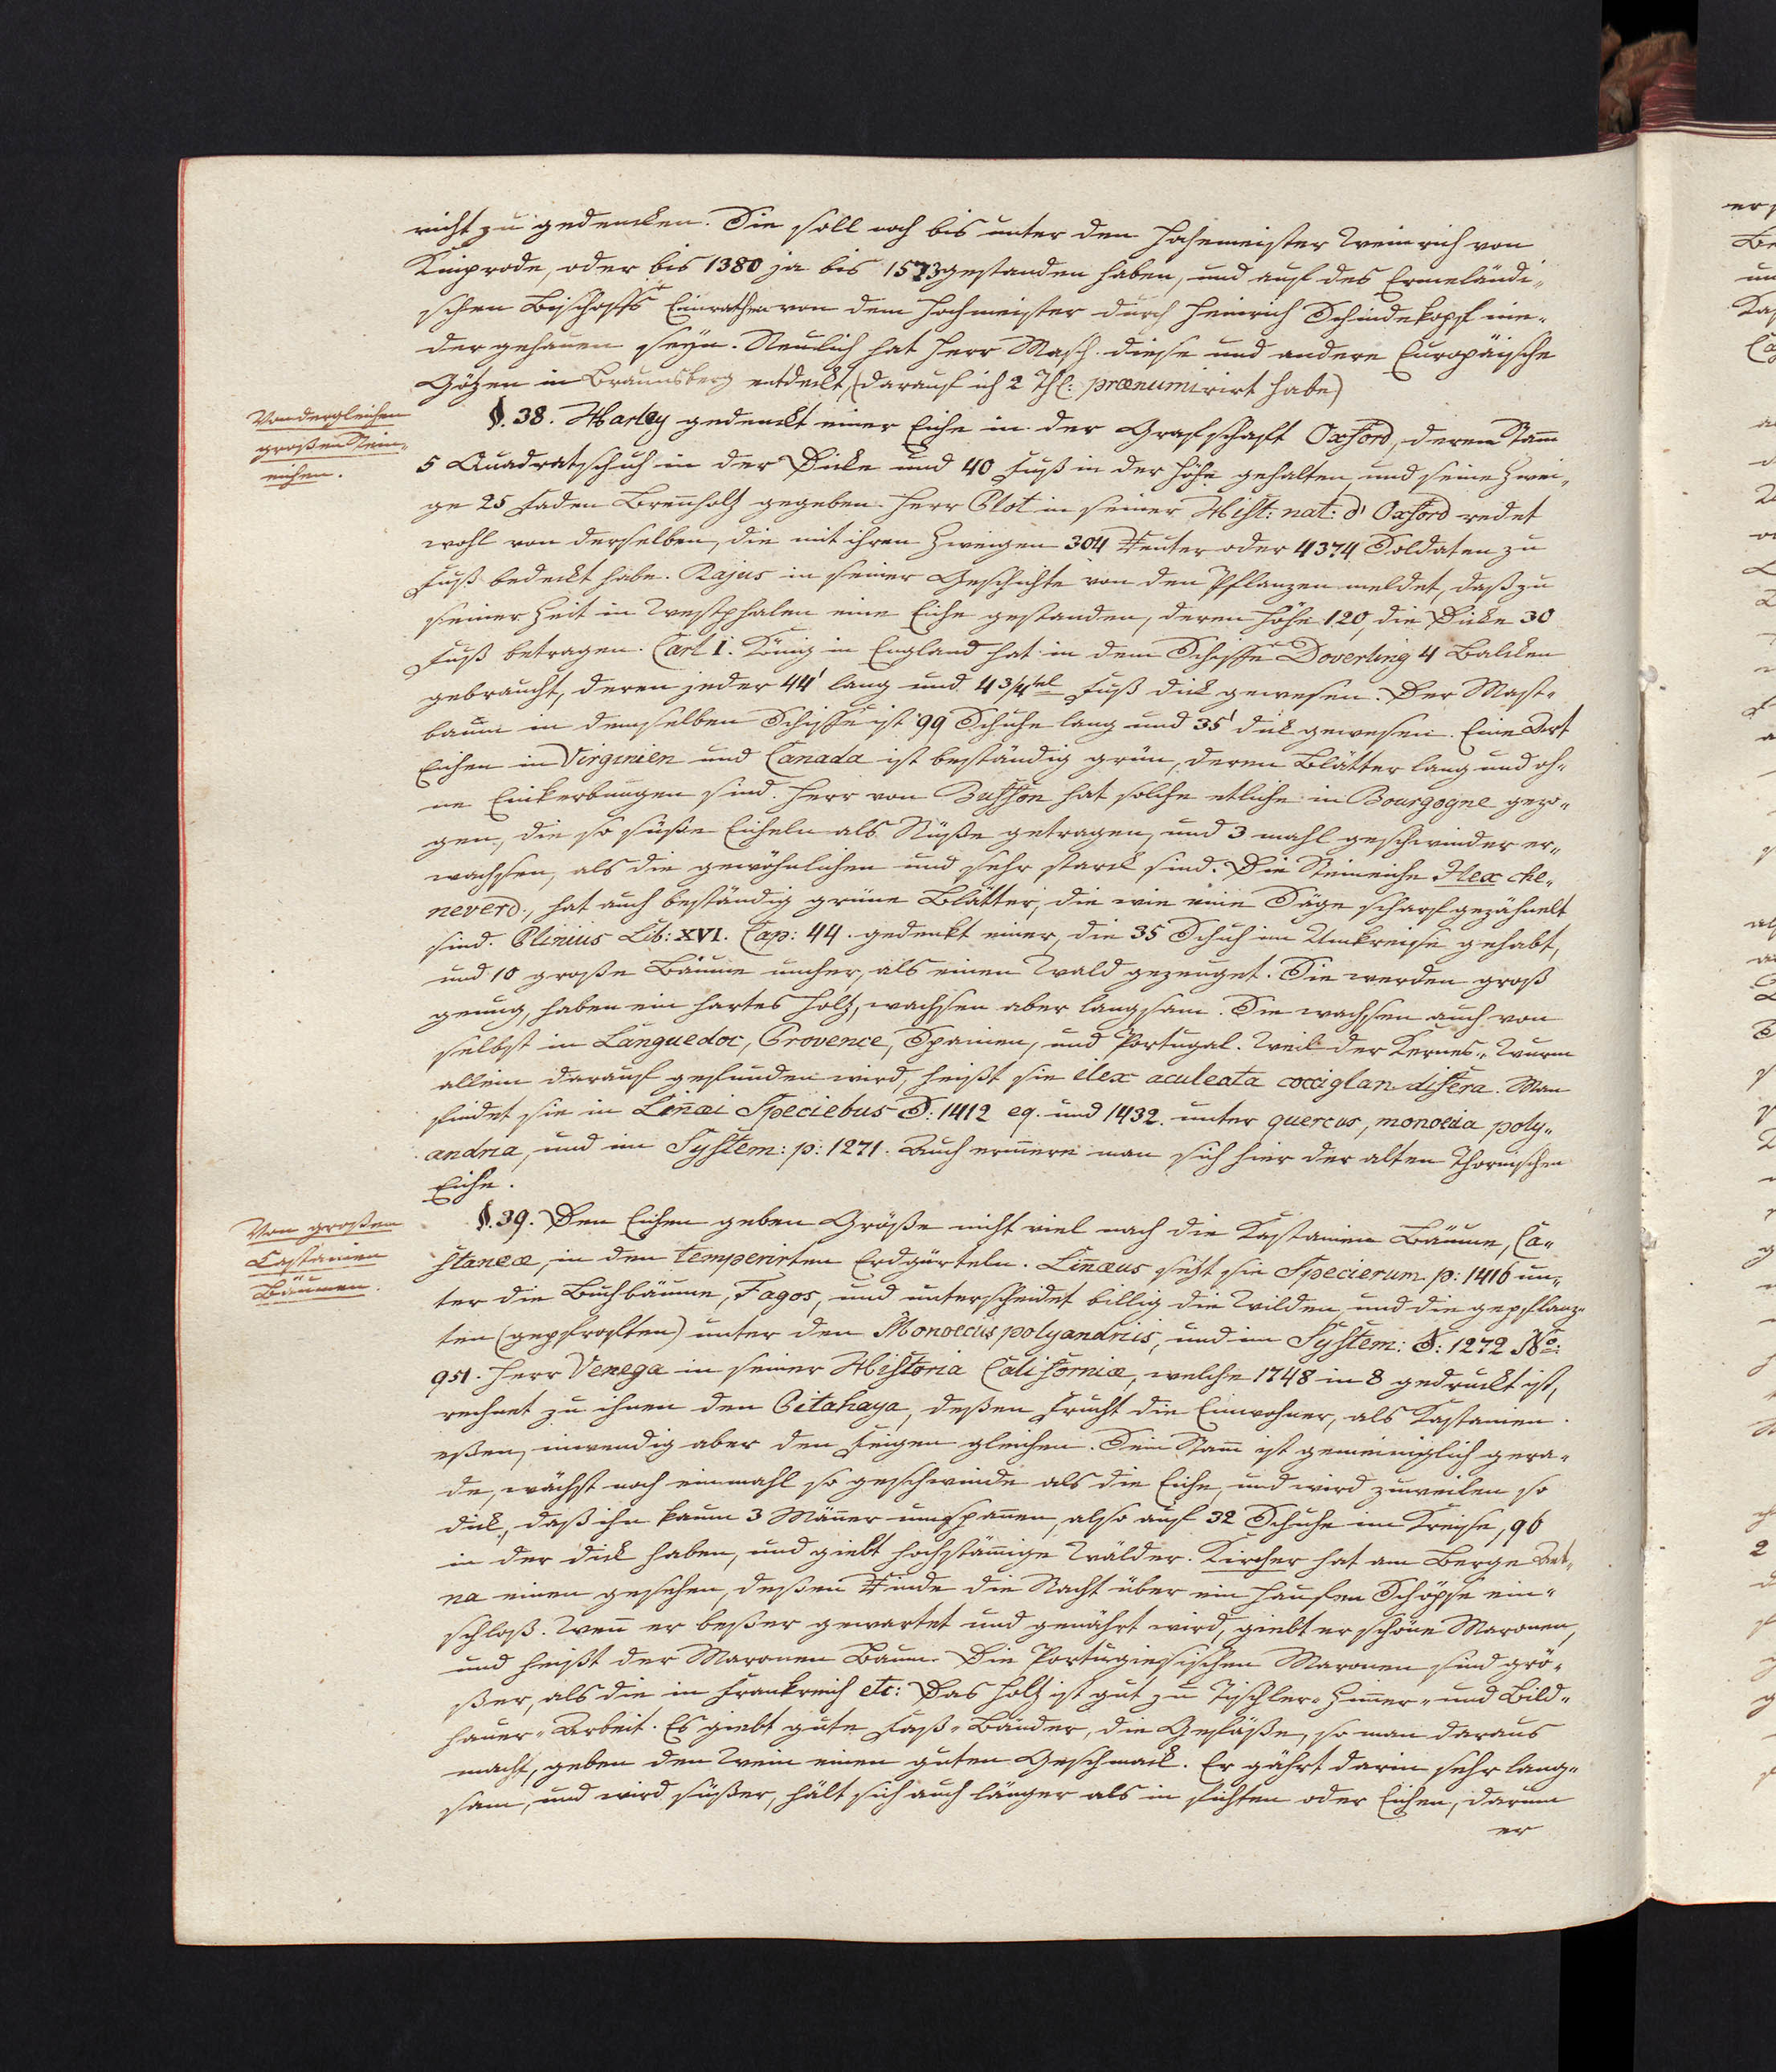 nicht zu gedencken. Sie soll noch bis unter den Hochemeister Weinrich von
Kniprode, oder bis 1380 ja bis 1573 gestanden haben, und auf des Ermeländi„
schen Bischoffs Einrathen von dem Hochmeister durch Heinrich Schindekopf nie„
dergehauen seyn. Neulich hat Herr Masch. diese und andere Europäische
Götzen in Braunsberg entdeckt, (darauf ich 2 Thl: prænumerirt habe)
Von dergleichen
großen Stein„
eichen.
§. 38. Harley gedenckt einer Eiche in der Grafschaft Oxford, deren Stam̄
5 Quadratschuh in der Dicke und 40 Fuß in der Höhe gehalten, und seine Zwei„
ge 25 Faden Breñholtz gegeben. Herr Plot in seiner Hist: nat: d' Oxford redet
wohl von derselben, die mit ihren Zweigen 304 Reuter oder 4374 Soldaten zu
Fuß bedeckt habe. Rajus in seiner Geschichte von den Pflanzen meldet, daß zu
seiner Zeit in Westphalen eine Eiche gestanden, deren Höhe 120, die Dicke 30
Fuß betragen. Carl I. König in England hat in dem Schiffe Doverling 4 Balcken
gebraucht, deren jeder 44' lang und 4 3/4tel Fuß dick gewesen. Der Mast„
baum in demselben Schiffe ist 99 Schuhe lang und 35' dick gewesen. Eine Art
Eichen in Virginien und Canada ist beständig grün, deren Blätter lang und oh„
ne Einkerbungen sind. Herr von Buffon hat solche etliche in Bourgogne gezo„
gen, die so süße Eicheln als Nüße getragen, und 3 mahl geschwinder er„
wachsen, als die gewöhnlichen und sehr starck sind. Die Steineiche Ilex che„
neverd, hat auch beständig grüne Blätter, die wie eine Säge scharf gezähnelt
sind. Plinius Lib: XVI. Cap: 44. gedenkt einer, die 35 Schuh im Umkreise gehabt,
und 10 große Bäume umher, als einen Wald gezeuget. Sie werden groß
genung, haben ein hartes Holtz, wachsen aber langsam. Sie wachsen auch von
selbst in Languedoc, Provence, Spanien, und Portugal. Weil der Kermes„Wurm
allein darauf gefunden wird, heißt sie ilex aculeata cocciglandifera. Man
findet sie in Liñæi Speciebus S: 1412 eq. und 1432. unter quercus, monoecia poly„
andria, und im System: p: 1271. Auch erinnere man sich hier der alten Thornischen
Eiche.
Von großen
Castanien
Bäumen.
§. 39. Den Eichen geben Größe nicht viel nach die Kastanien Bäume, Ca„
staneæ, in den temperirten Erdgürteln. Liñæus setzt sie Specierum p: 1416 un„
ter die Buchbäume, Fagos, und unterscheidet billig die Wilden, und die gepflanz„
ten (gepfropften) unter den Monoecus polyandriis, und im System: S: 1272 No:
951. Herr Venega in seiner Historia Californiæ, welche 1748 in 8 gedruckt ist,
rechnet zu ihnen den Pitahaya, deßen Frucht die Einwohner, als Kastanien
eßen, inwendig aber den Feigen gleichen. Sein Stam̄ ist gemeiniglich gera„
de, wächst noch einmahl so geschwinde als die Eiche, und wird zuweilen so
dick, daß ihn kaum 3 Mäñer umspañen, also auf 32 Schuhe im Kreise, 96
in der dick haben, und giebt hochstäm̄ige Wälder. Kircher hat am Berge Aet„
na einen gesehen, deßen Rinde die Nacht über ein Haufen Schöpse ein„
schloß. Weñ er beßer gewartet und genährt wird, giebt er schöne Maronen,
und heißt der Maronen Baum. Die Portugiesischen Maronen sind grö„
ßer, als die in Frankreich etc: Das Holtz ist gut zu Tischler„Zim̄er„ und Bild„
hauer„Arbeit. Es giebt gute Faß„Bänder, die Gefäße, so man daraus
macht, geben den Wein einen guten Geschmack. Er gährt darin sehr lang„
sam, und wird süßer, hält sich auch länger als in Fichten oder Eichen, darum
er